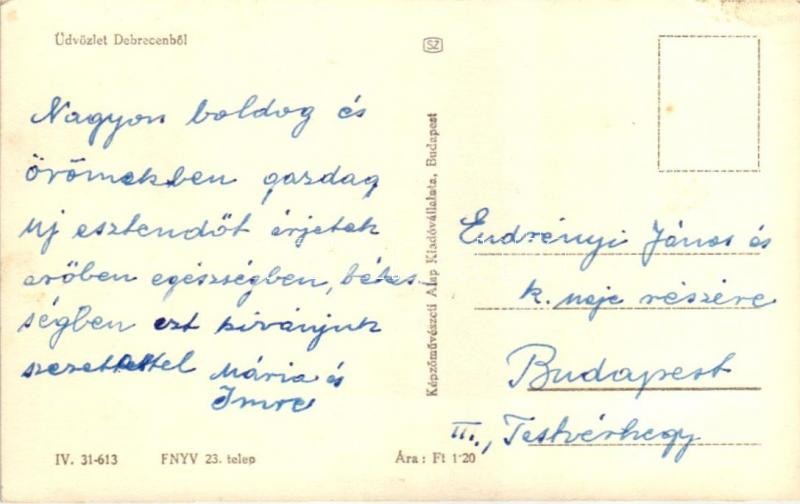 Üdvözlet Debrecenből
SZ
Nagyon boldog és
örömekben gazdag
uj esztendőt érjetek
erőben egészségben, békes
ségben ezt kivánjuk
szeretettel Mária és
Imre
Képzőművészeti Alap Kiadóvállalata, Budapest
Endrényi János és
k. neje részére
Budapest
III., Testvérhegy
IV. 31-613 FNYV 23. telep Ára: Ft 1·20